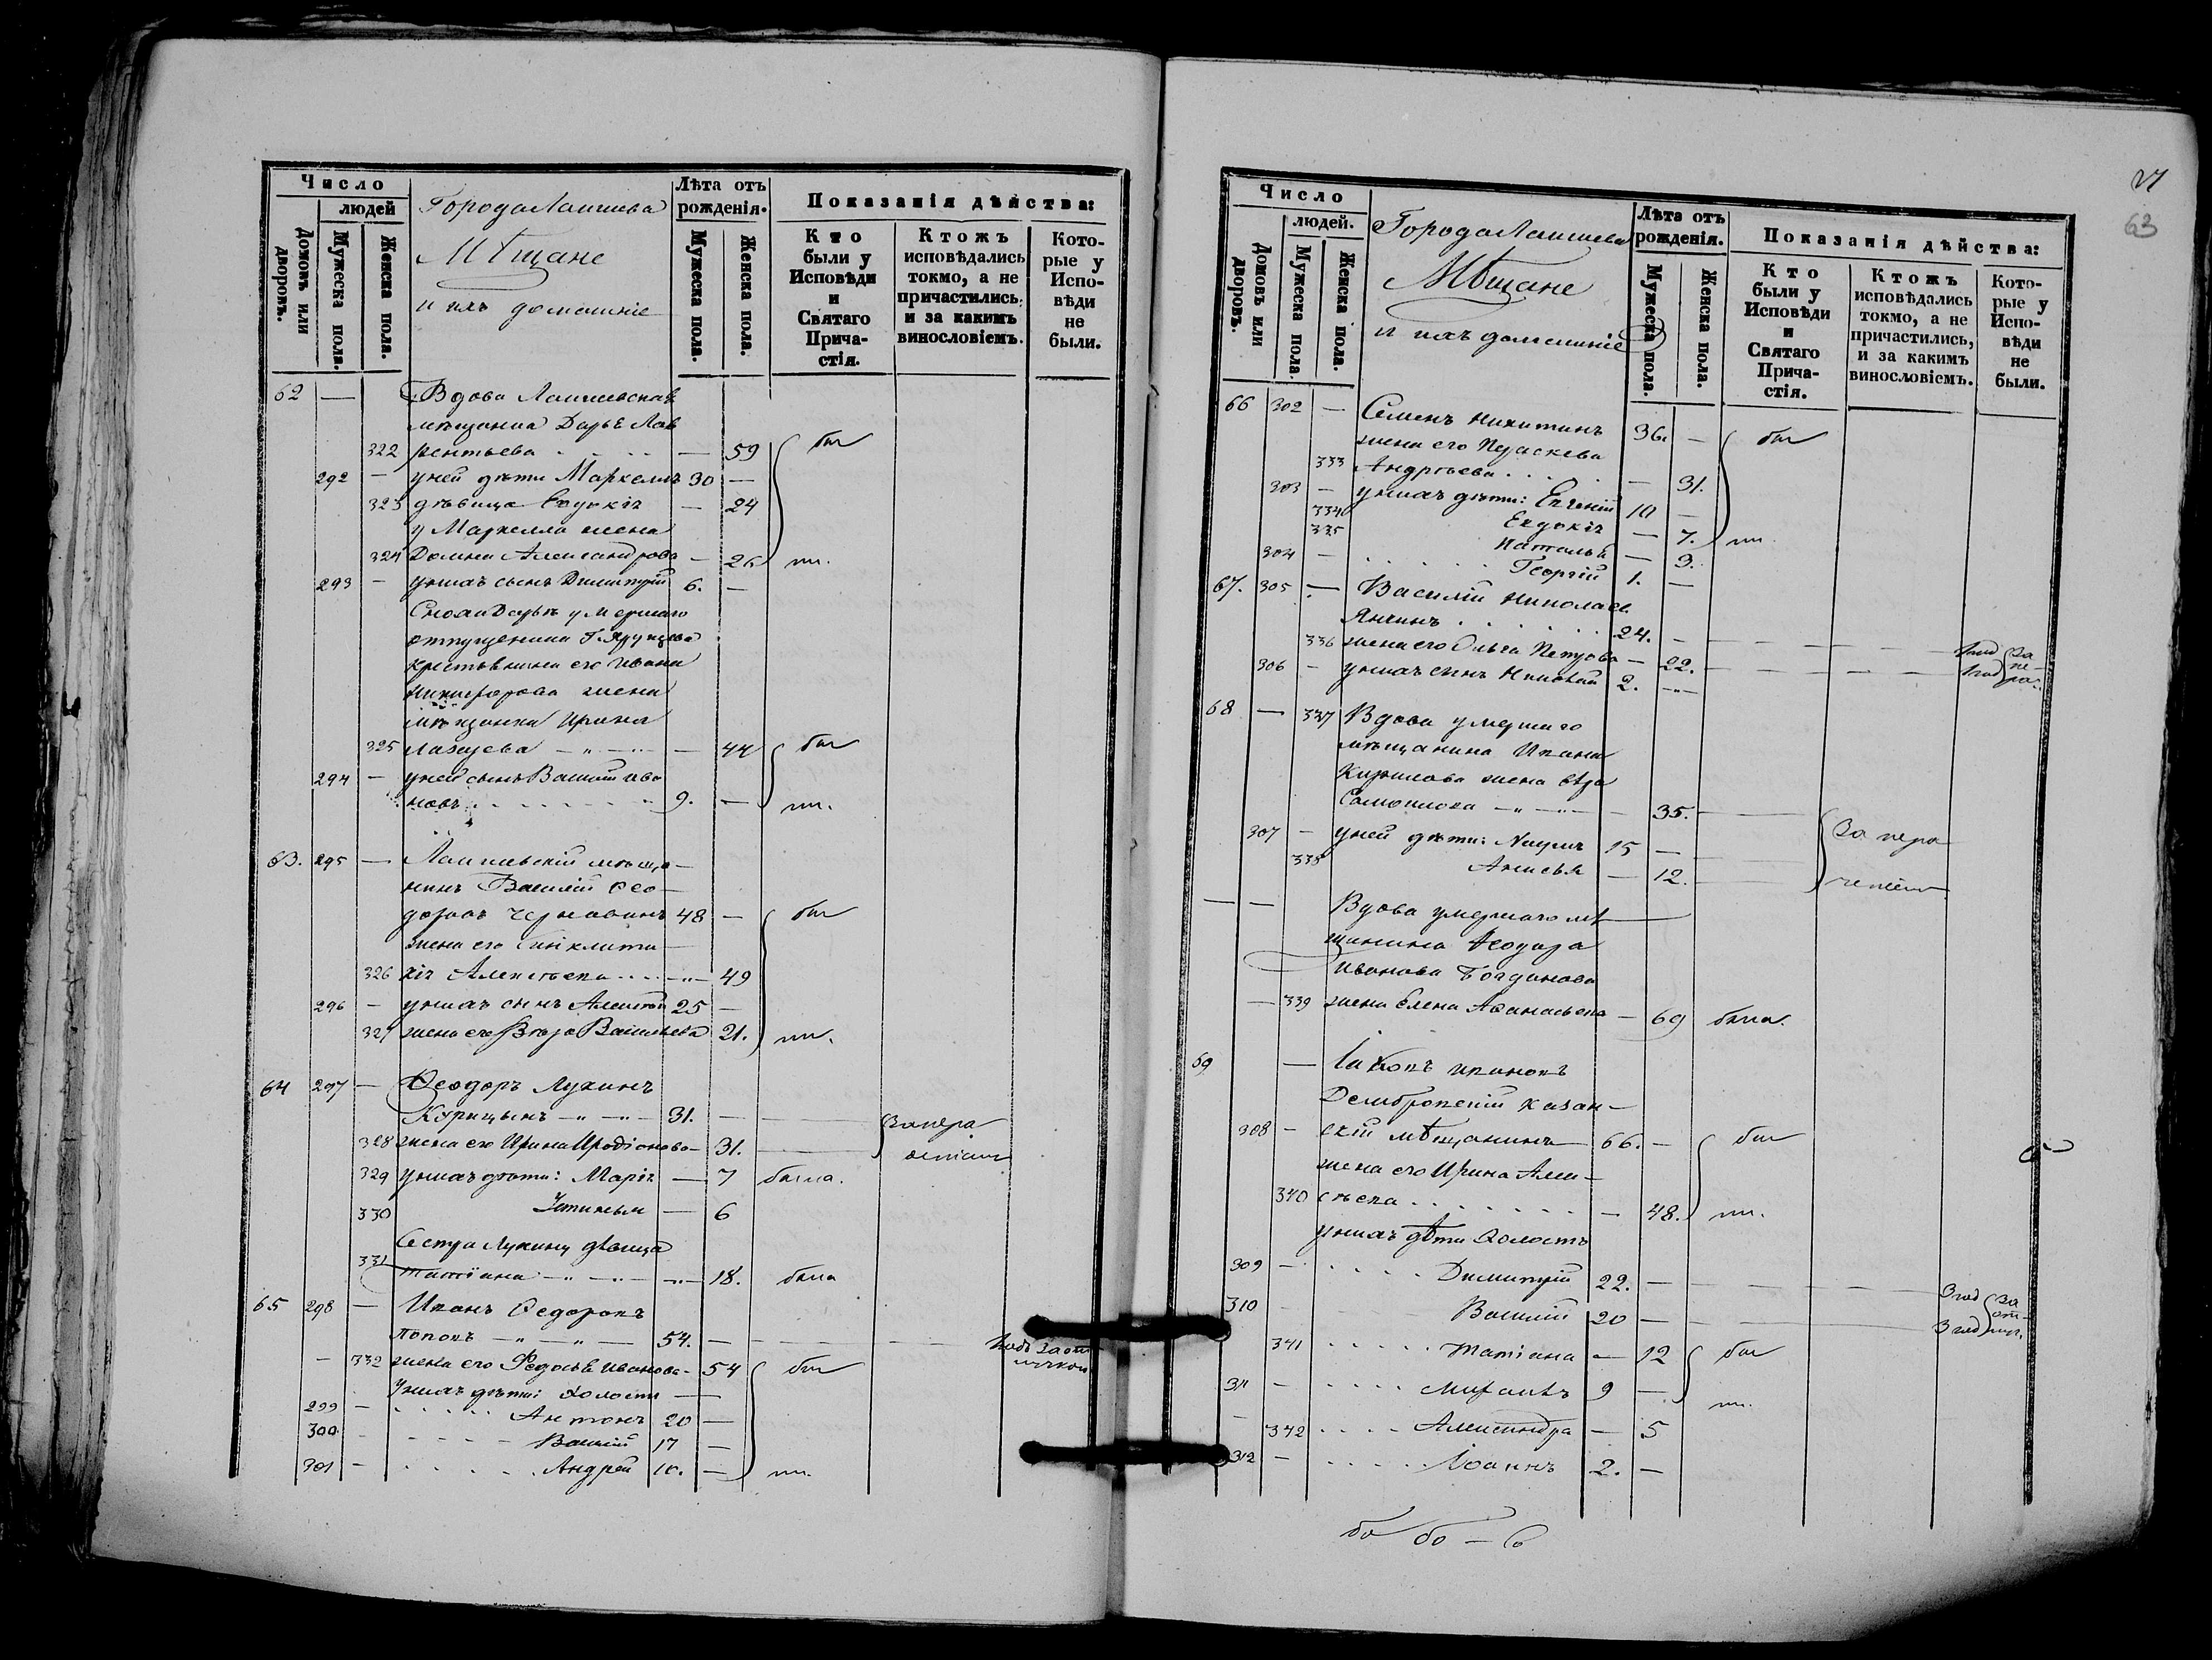 Число
людей
Домовъ или дворовъ.
Мужеска пола.
Женска пола.
Города Лаишева
Мѣщане
и ихъ домашніе
Лѣта отъ рожденія.
Мужеска пола.
Женска пола.
Показанія дѣйства:
Кто были у Исповѣди и Святаго Прича-стія.
Ктожъ исповѣдались токмо, а не причастились, и за какимъ винословіемъ.
Кото-рые у Испо-вѣди не были.
62 — Вдова Лаишевская
мѣщанка Дарья Лав
322 рентьева — 59 бы
292 — у ней дѣти Маркеллъ 30 —
323 дѣвица Евдокія — 24
у Маркелла жена
324 Домна Александрова — 26 ли.
293 — у нихъ сынъ Димитрій 6. —
Сноха Дарьи умершаго
отпущенника
крестьянина его Ивана
Никифорова жена
мѣщанка Ирина
325 Лазарева — 44 бы
294 — у ней сынъ Василій Ива
новъ 9. — ли.
63. 295 — Лаишевскій мѣща-
нинъ Василій Ѳео-
доровъ Чернавинъ 48 — бы
жена его Синклити-
326 кія Алексѣева — 49
296 — у нихъ сынъ Алексѣй 25 —
327 жена его Вѣра Васильева 21. ли.
64 297 — Ѳеодоръ Лукинъ
Курицынъ 31. — за нера
328 жена его Ирина Иродіонова — 31. дѣніемъ
329 у нихъ дѣти: Марія — 7 была.
330 Устинья — 6
Сестра Лукина дѣвица
331 Татіана — 18. была
65 298 — Иванъ Ѳедоровъ
Поповъ 54. — 1 годъ за от
— 332 жена его Ѳедосья Иванова — 54 бы лучкою
У нихъ дѣти: холосты —
299 — Антонъ 20 —
300 — Василій 17 —
301 — Андрей 10. — ли.
63
Число
людей.
Домовъ или дворовъ.
Мужеска пола.
Женска пола.
Города Лаишева
Мѣщане
и ихъ домашніе
Лѣта отъ рожденія.
Мужеска пола.
Женска пола.
Показанія дѣйства:
Кто были у Исповѣди и Святаго Прича-стія.
Ктожъ исповѣдались токмо, а не причастились, и за какимъ винословіемъ.
Кото-рые у Испо-вѣди не были.
66 302 — Семенъ Никитинъ 36. — бы
жена его Параскева
333 Андреева — 31.
303 — у нихъ дѣти: Евгеній 10 —
334 Евдокія — 7. ли
335 Наталья — 3.
304 — Георгій 1. —
67. 305 — Василій Николаев
24. — 1 год за
336 жена его Ольга Петрова — 22. — 1 год не
306 — у нихъ сынъ Николай 2. — ра.
68 — 337 Вдова умершаго
мѣщанина Ивана
Кирилова жена Вѣра
Самойлова — 35. —
307 — у ней дѣти: 15 — за нера
338 Анисья — 12. —
— — Вдова умершаго мѣ
щанина Ѳеодора
Иванова Богданова
— 339 жена Елена Аѳанасьева — 69 была.
69 — Іаковъ Ивановъ
Казан-
308 — скій мѣщанинъ 66. — бы
жена его Ирина Алек-
340 сѣева — 48. ли.
у нихъ дѣти холосты
309 — Димитрій 22. — 3 год за
310 Василій 20 — 3 год от луч.
341 Татіана — 12 бы
311 — Михаилъ 9 — ли.
— 342 Александра — 5
312 — Іоаннъ 2. —